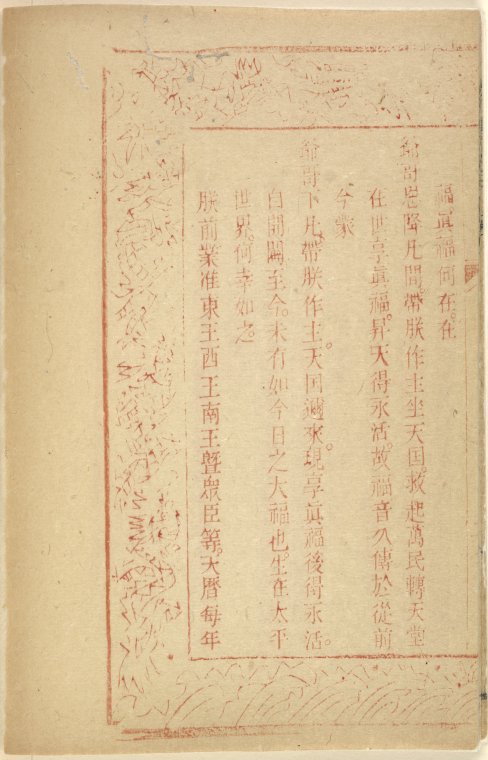 福真福何在在
爺哥恩降凡間帶朕作主坐天国。救起萬民轉天堂
在世享真福。昇天得永活。故福音久傳於從前
今蒙
爺哥下凡。帶朕作主。天国邇來。現享真福後得永活。
自開闢至今。未有如今日之大福也。生在太平
世界。何幸如之
朕前業准東王西王南王曁眾臣等。天曆每年